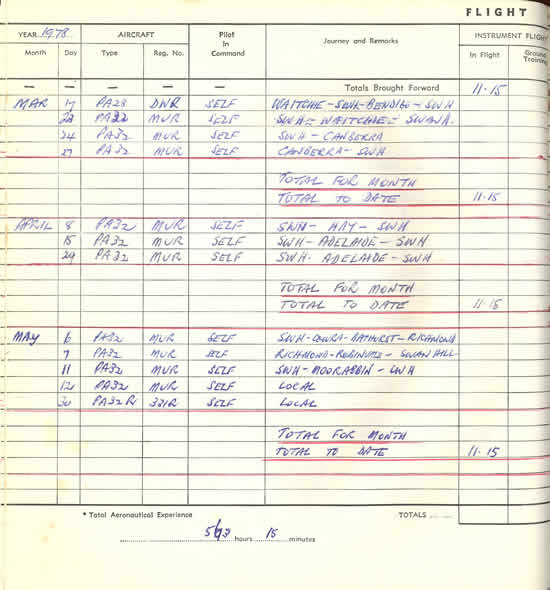 FLIGHT
YEAR 1978 AIRCRAFT Pilot In Command Journey and Remarks INSTRUMENT FLIGHT
Month Day Type Reg. No. In Flight Ground Training
— — — — — Totals Brought Forward 11-15
MAR 17 PA28 DWR SELF WAITCHIE-SWH-BENDIGO-SWH
23 PA32 MUR SELF SWH-WAITCHIE-
24 PA32 MUR SELF SWH-CANBERRA
27 PA32 MUR SELF CANBERRA-SWH
TOTAL FOR MONTH
TOTAL TO DATE 11-15
APRIL 8 PA32 MUR SELF SWH-HAY-SWH
15 PA32 MUR SELF SWH-ADELAIDE-SWH
29 PA32 MUR SELF SWH-ADELAIDE-SWH
TOTAL FOR MONTH
TOTAL TO DATE 11-15
MAY 6 PA32 MUR SELF SWH-COWRA-BATHURST-RICHMOND
7 PA32 MUR SELF RICHMOND-ROBINVALE-SWAN HILL
11 PA32 MUR SELF SWH-MOORABBIN-SWH
12 PA32 MUR SELF LOCAL
30 PA32R SELF LOCAL
TOTAL FOR MONTH
TOTAL TO DATE 11-15
* Total Aeronautical Experience TOTALS
hours 15 minutes